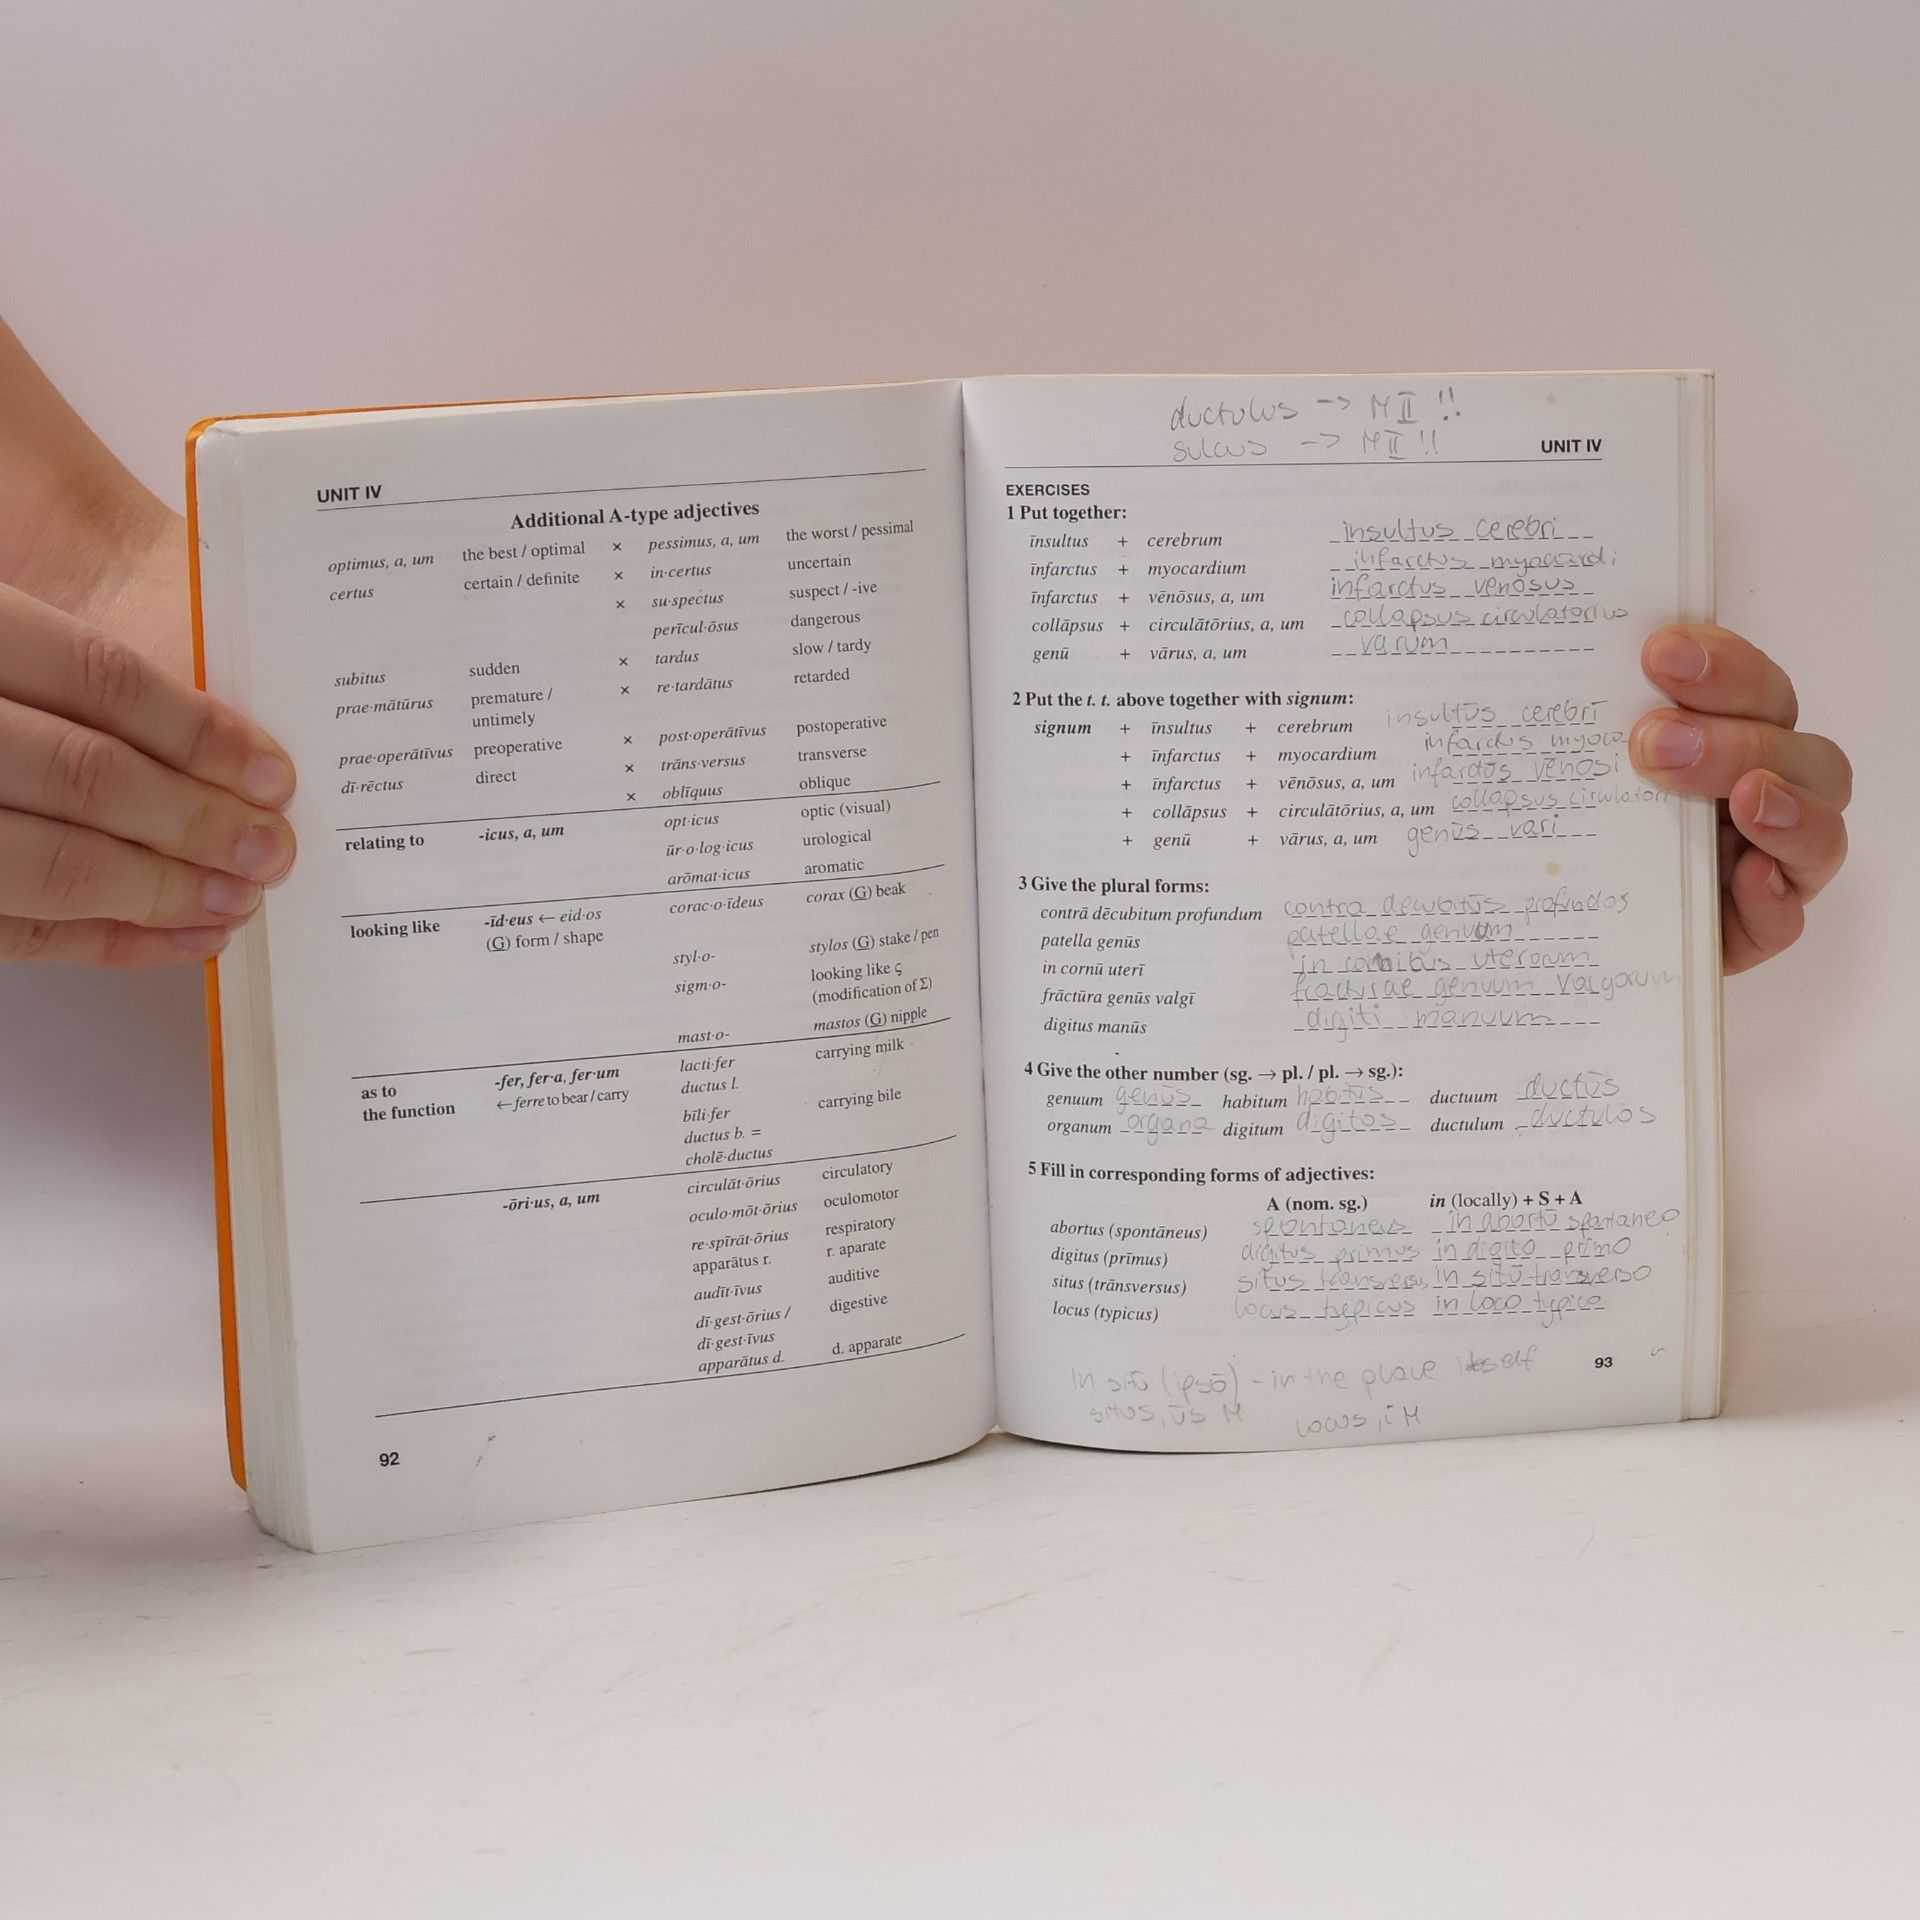 UNIT IV
Additional A-type adjectives
optimus, a, um the best / optimal × pessimus, a, um the worst / pessimal
certus certain / definite × in·certus uncertain
× su·spectus suspect / -ive
perīcul·ōsus dangerous
subitus sudden × tardus slow / tardy
prae·mātūrus premature / × re·tardātus retarded
untimely
prae·operātīvus preoperative × post·operātīvus postoperative
dī·rēctus direct × trāns·versus transverse
× oblīquus oblique
relating to -icus, a, um opt·icus optic (visual)
ūr·o·log·icus urological
arōmat·icus aromatic
looking like -īd·eus ← eid·os corac·o·īdeus corax (G) beak
(G) form / shape
styl·o- stylos (G) stake / pen
sigm·o- looking like ς
(modification of Σ)
mast·o- mastos (G) nipple
as to -fer, fer·a, fer·um lacti·fer carrying milk
the function ← ferre to bear / carry ductus l.
bīli·fer carrying bile
ductus b. =
cholē·ductus
-ōri·us, a, um circulāt·ōrius circulatory
oculo·mōt·ōrius oculomotor
re·spīrāt·ōrius respiratory
apparātus r. r. aparate
audīt·īvus auditive
dī·gest·ōrius / digestive
dī·gest·īvus
apparātus d. d. apparate
92
ductulus -> M II !!
sulcus -> M II !!
UNIT IV
EXERCISES
1 Put together:
īnsultus + cerebrum insultus cerebri
īnfarctus + myocardium infarctus myocardi
īnfarctus + vēnōsus, a, um infarctus venosus
collāpsus + circulātōrius, a, um collapsus circulatorius
genū + vārus, a, um varum
2 Put the t. t. above together with signum:
signum + īnsultus + cerebrum insultūs cerebrī
+ īnfarctus + myocardium infarctus myoco-
+ īnfarctus + vēnōsus, a, um infarctūs venosi
+ collāpsus + circulātōrius, a, um collapsus circulatori
+ genū + vārus, a, um genūs vari
3 Give the plural forms:
contrā dēcubitum profundum contra decubitūs profundos
patella genūs patellae genuum
in cornū uterī in cornibus uterorum
frāctūra genūs valgī fracturae genuum valgorum
digitus manūs digiti manuum
4 Give the other number (sg. → pl. / pl. → sg.):
genuum genūs habitum habitūs ductuum ductūs
organum organa digitum digitos ductulum ductulōs
5 Fill in corresponding forms of adjectives:
A (nom. sg.) in (locally) + S + A
abortus (spontāneus) spontaneus in abortū spontaneo
digitus (prīmus) digitus primus in digito primo
situs (trānsversus) situs transversus in sitū transverso
locus (typicus) locus typicus in loco typico
In sitū (ipsō) - in the place itself
93
situs, ūs M locus, ī M